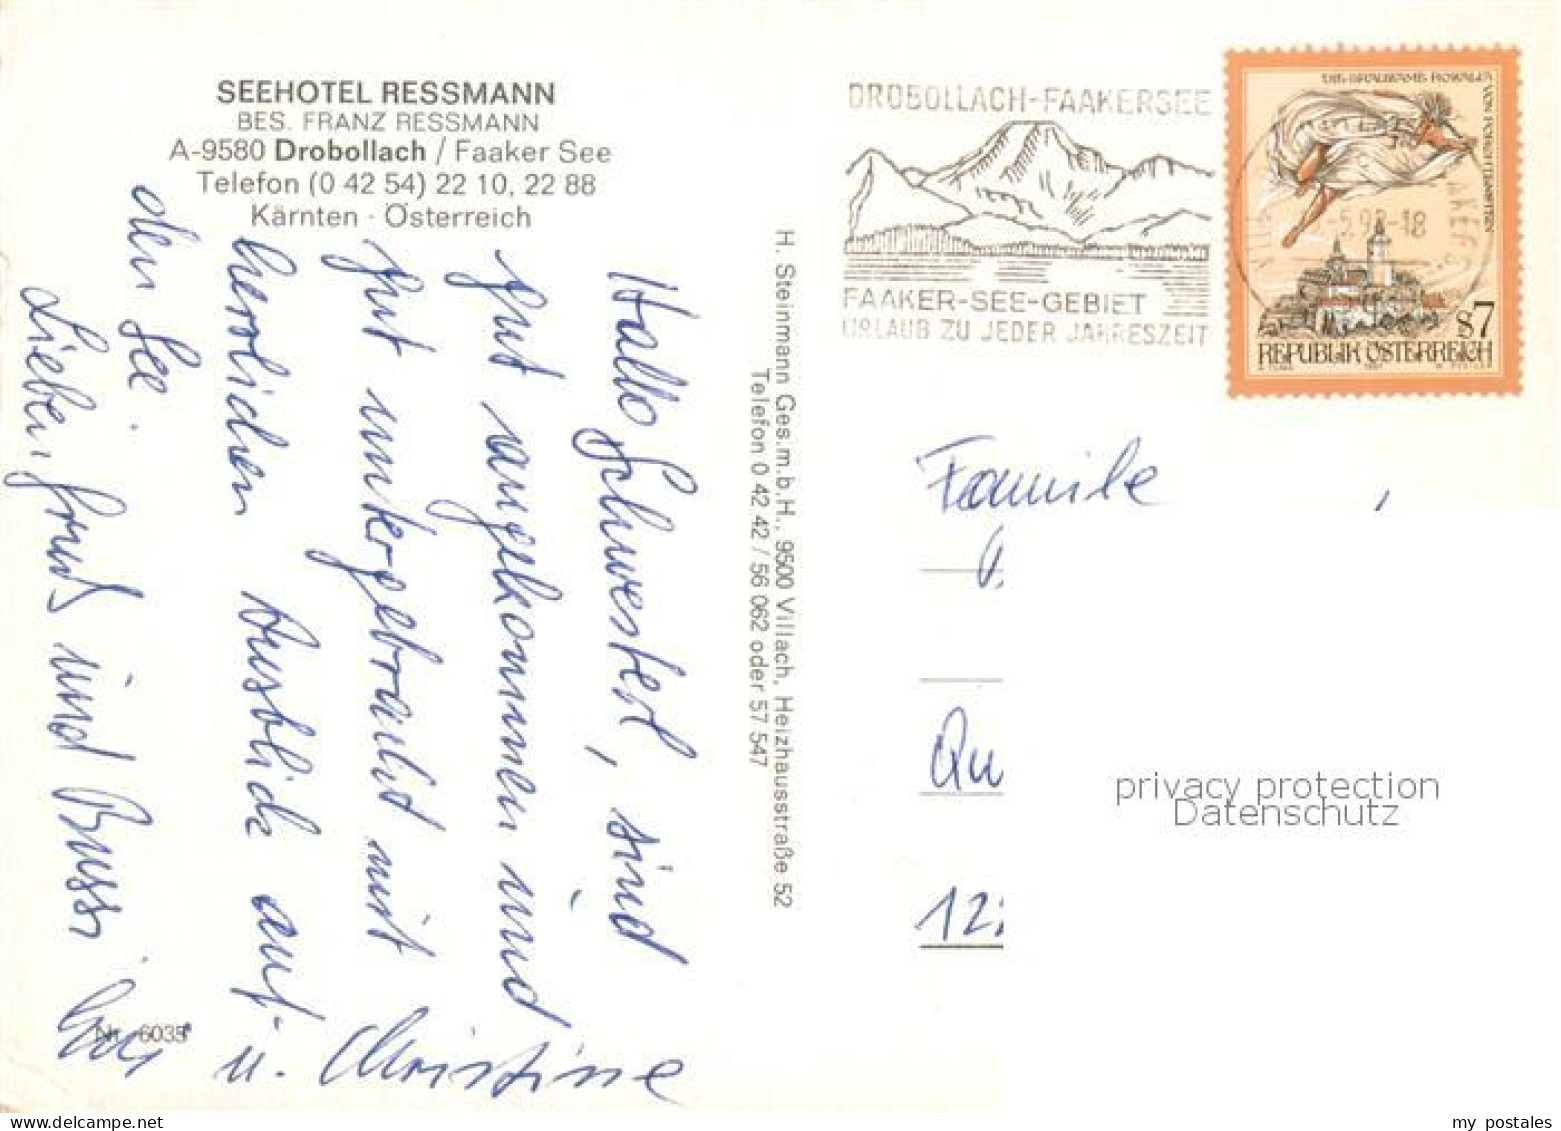 SEEHOTEL RESSMANN
BES. FRANZ RESSMANN
A-9580 Drobollach / Faaker See
Telefon (0 42 54) 22 10, 22 88
Kärnten · Österreich
Hallo Schwester, sind
gut angekommen und
gut untergebracht mit
herrlichen Ausblick auf
den See.
Lieben Gruß und Bussi
u. Christine
Nr. 6035
H. Steinmann Ges.m.b.H., 9500 Villach, Heizhausstraße 52
Telefon 0 42 42 / 56 062 oder 57 547
DROBOLLACH-FAAKERSEE
FAAKER-SEE-GEBIET
URLAUB ZU JEDER JAHRESZEIT
DIE GRAUSAME ROSALIA
VON FORCHTENSTEIN
S7
REPUBLIK ÖSTERREICH
Familie
Qu
12
privacy protection
Datenschutz
my postales